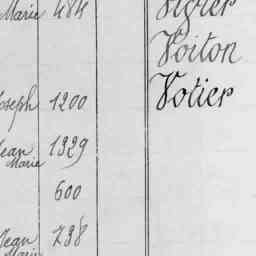 Marie 484 Vigier
Voiton
Joseph 1200 Votier
Jean Marie 1329
600
Jean Marie 238